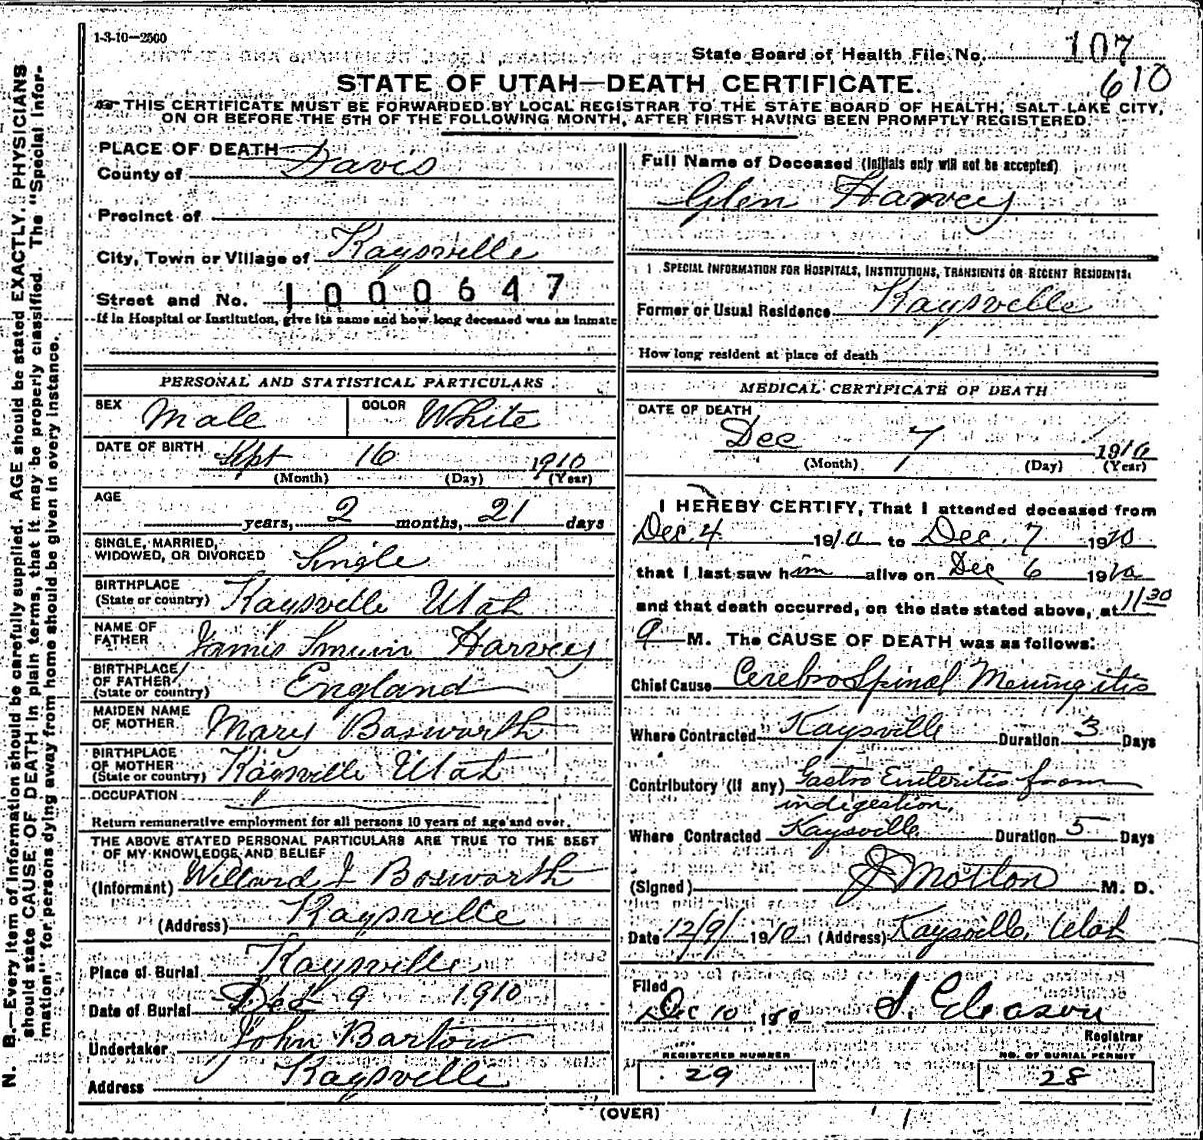 1-3-10—2500
State Board of Health File No. 107
610
STATE OF UTAH—DEATH CERTIFICATE.
THIS CERTIFICATE MUST BE FORWARDED BY LOCAL REGISTRAR TO THE STATE BOARD OF HEALTH, SALT LAKE CITY,
ON OR BEFORE THE 5TH OF THE FOLLOWING MONTH, AFTER FIRST HAVING BEEN PROMPTLY REGISTERED.
N. B.—Every item of information should be carefully supplied. AGE should be stated EXACTLY. PHYSICIANS
should state CAUSE OF DEATH in plain terms, that it may be properly classified. The "Special Infor-
mation" for persons dying away from home should be given in every instance.
PLACE OF DEATH
County of Davis
Precinct of
City, Town or Village of Kaysville
Street and No. 1000647
If in Hospital or Institution, give its name and how long deceased was an inmate
PERSONAL AND STATISTICAL PARTICULARS
SEX Male COLOR White
DATE OF BIRTH Sept 16 1910
(Month) (Day) (Year)
AGE
years, 2 months, 21 days
SINGLE, MARRIED,
WIDOWED, OR DIVORCED Single
BIRTHPLACE
(State or country) Kaysville Utah
NAME OF
FATHER James Smuin Harvey
BIRTHPLACE
OF FATHER
(State or country) England
MAIDEN NAME
OF MOTHER Mary Bosworth
BIRTHPLACE
OF MOTHER
(State or country) Kaysville Utah
OCCUPATION
Return remunerative employment for all persons 10 years of age and over.
THE ABOVE STATED PERSONAL PARTICULARS ARE TRUE TO THE BEST
OF MY KNOWLEDGE AND BELIEF
(Informant) Willard J Bosworth
(Address) Kaysville
Place of Burial Kaysville
Date of Burial Dec 9 1910
Undertaker John Barton
Address Kaysville
Full Name of Deceased (Initials only will not be accepted)
Glen Harvey
SPECIAL INFORMATION FOR HOSPITALS, INSTITUTIONS, TRANSIENTS OR RECENT RESIDENTS:
Former or Usual Residence Kaysville
How long resident at place of death
MEDICAL CERTIFICATE OF DEATH
DATE OF DEATH
Dec 7 1910
(Month) (Day) (Year)
I HEREBY CERTIFY, That I attended deceased from
Dec 4 1910 to Dec. 7 1910
that I last saw him alive on Dec 6 1910
and that death occurred, on the date stated above, at 11 30
a M. The CAUSE OF DEATH was as follows:
Chief Cause Cerebro Spinal Meningitis
Where Contracted Kaysville Duration 3 Days
Contributory (if any) Gastro Enteritis from
indigestion,
Where Contracted Kaysville Duration 5 Days
(Signed) Motton M. D.
Date 12/9/ 1910 (Address) Kaysville, Utah
Filed
Dec 10 1910 S. Gleason
Registrar
REGISTERED NUMBER
29
NO. OF BURIAL PERMIT
28
(OVER)